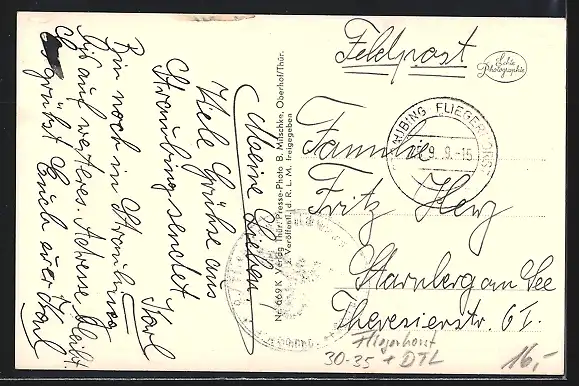 Meine Lieben!
Viele Grüße aus
Straubing sendet
Karl
Bin noch in Straubing
bis auf weiteres. Adresse bleibt.
Es grüßt Euch euer Karl
No 669K Verlag Thür. Presse-Photo B. Mitschke, Oberhof/Thür.
z. Veröffentl. d. R. L. M. freigegeben
Feldpost
Echte
Photographie
STRAUBING FLIEGERHORST
9. 9. -15
Familie
Fritz Herz
Starnberg am See
Theresierstr. 6 I.
Fliegerhorst
30-35 + DTL
16,-